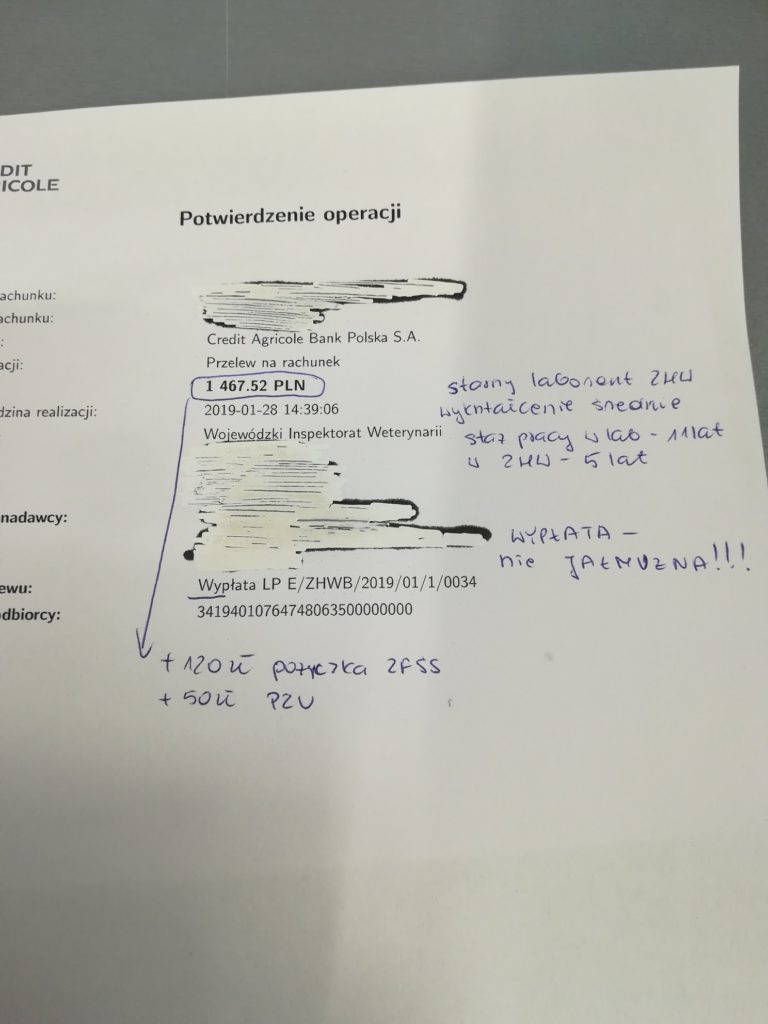 DIT
ICOLE
Potwierdzenie operacji
achunku:
achunku:
:
Credit Agricole Bank Polska S.A.
acji:
Przelew na rachunek
1 467.52 PLN
dzina realizacji:
2019-01-28 14:39:06
Wojewódzki Inspektorat Weterynarii
starszy laborant ZHW
wykształcenie średnie
staż pracy w lab - 11 lat
w ZHW - 5 lat
nadawcy:
WYPŁATA -
nie JAŁMUŻNA!!!
ewu:
Wypłata LP E/ZHWB/2019/01/1/0034
dbiorcy:
34194010764748063500000000
+ 120 zł pożyczka ZFŚS
+ 50 zł PZU